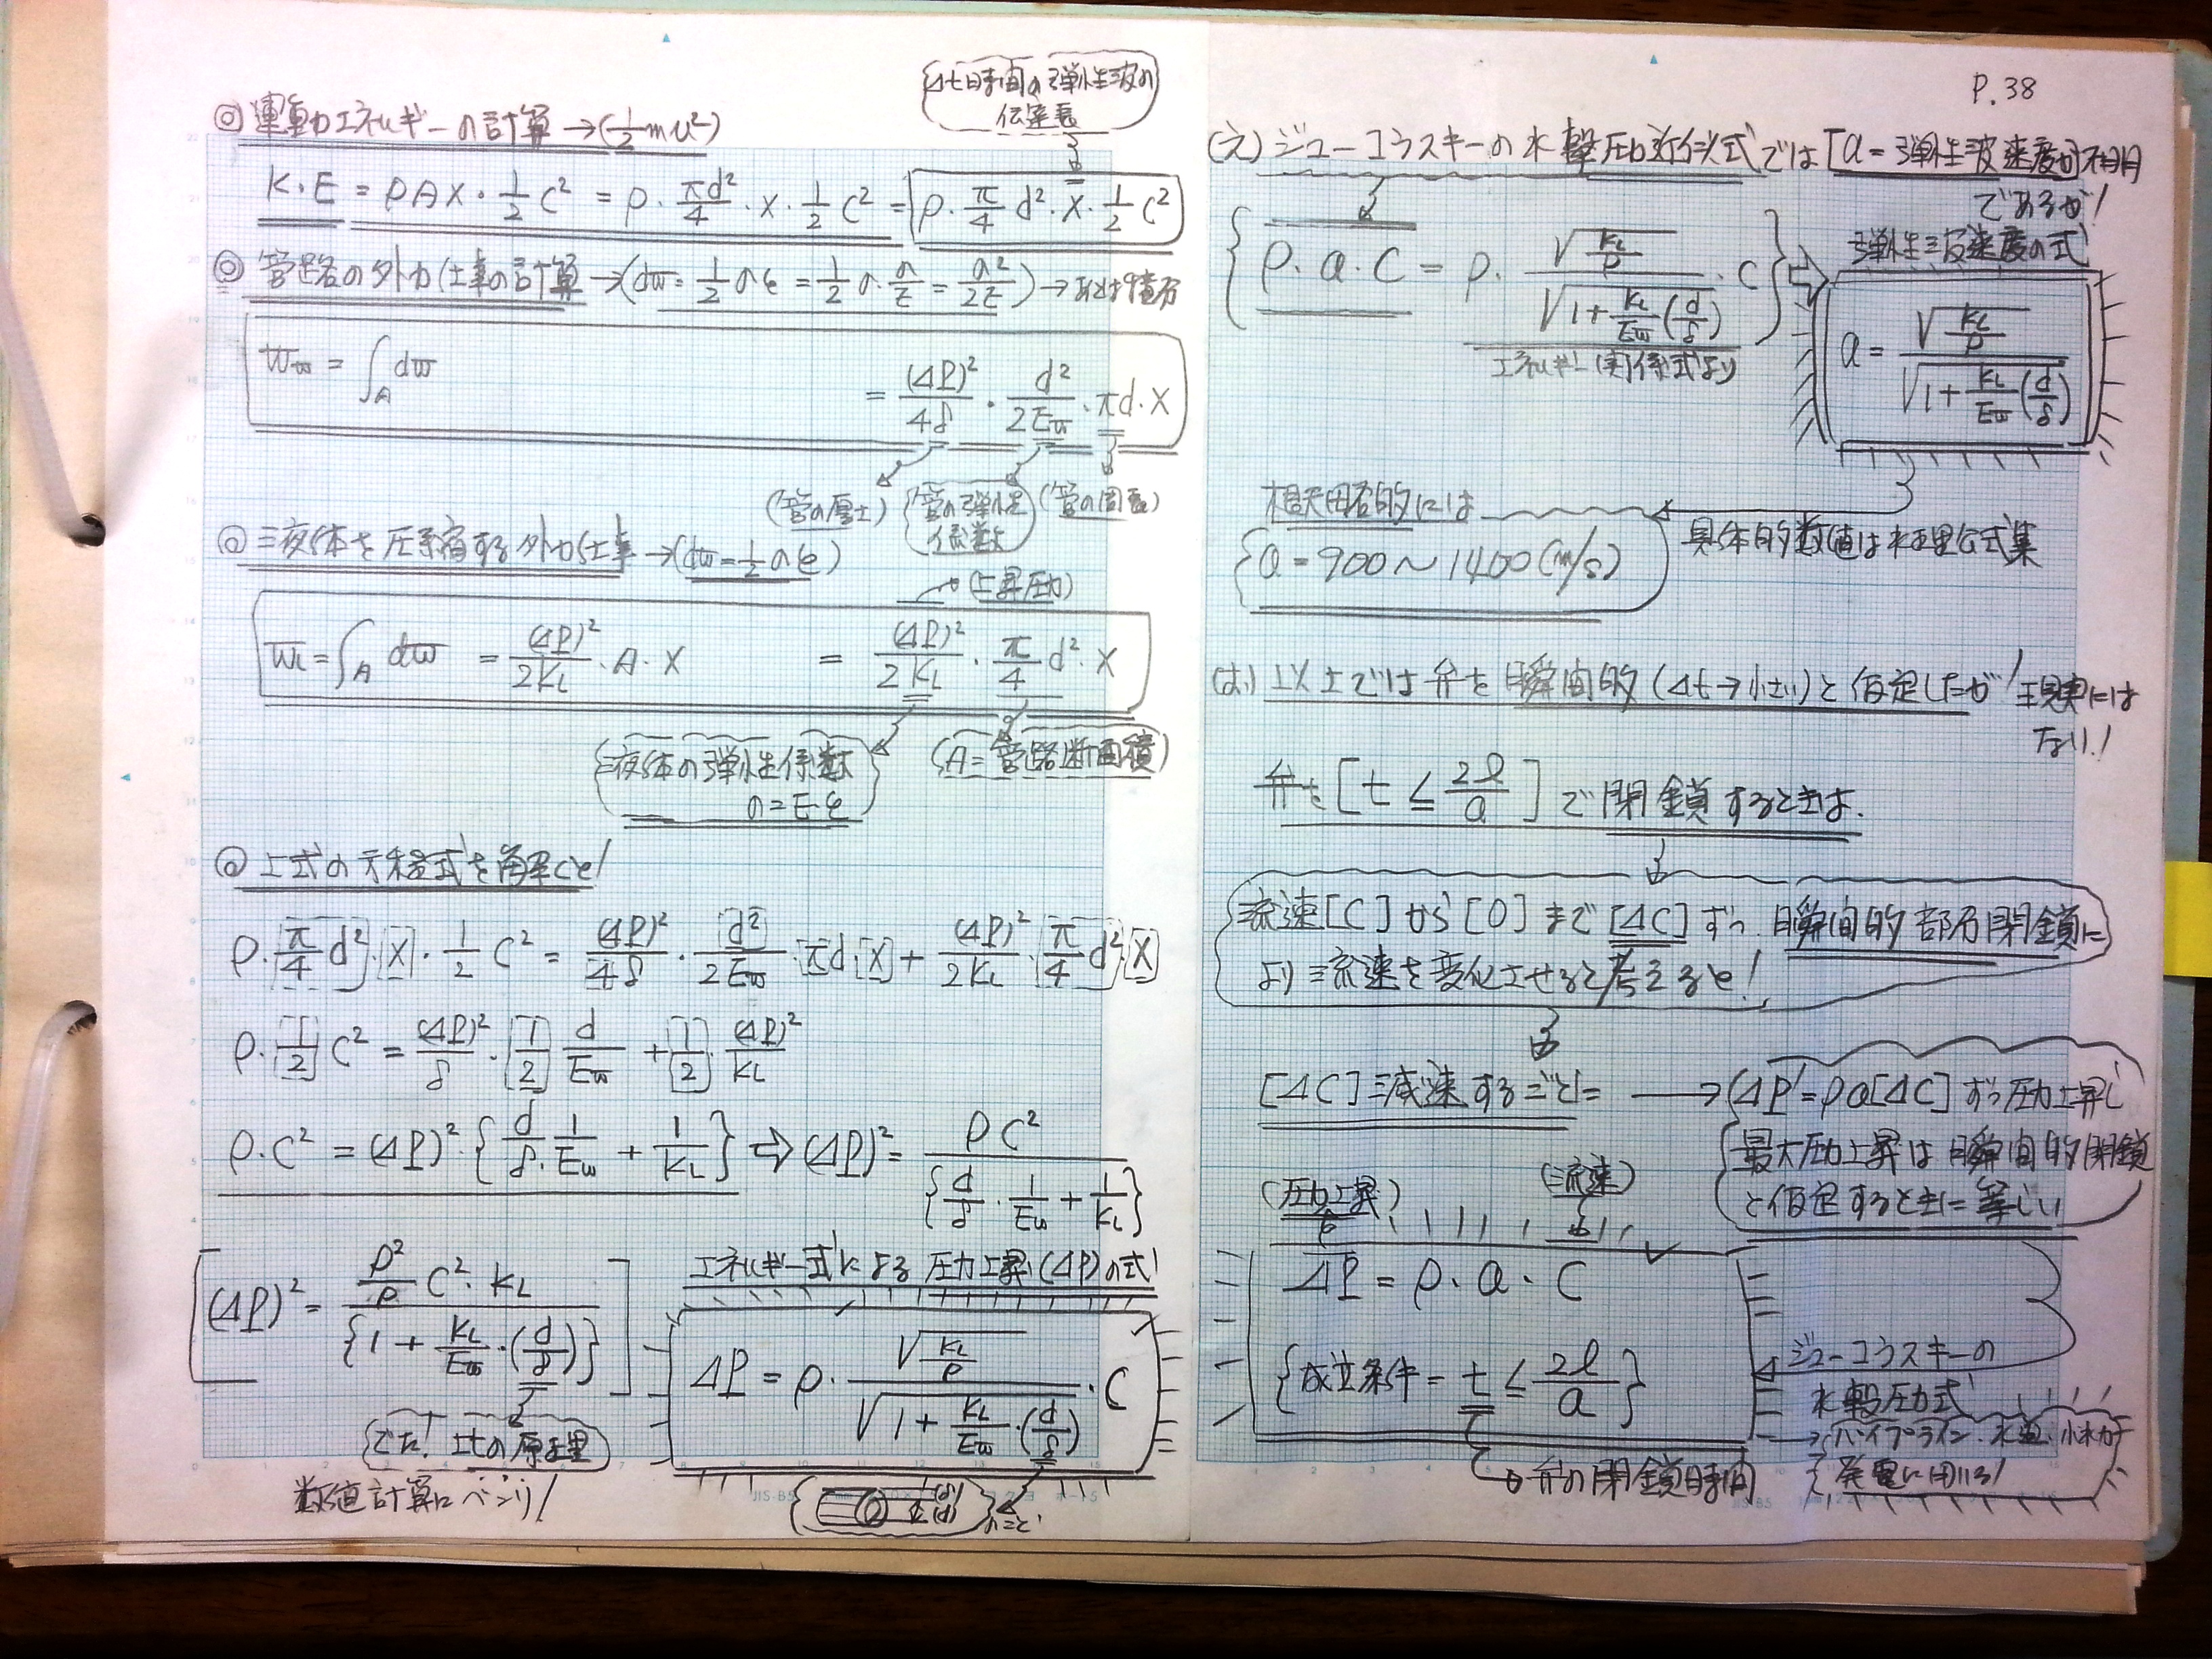 ◎ 運動エネルギーの計算 →(1/2 mv²)
(Δt時間の弾性波の
伝達長
K・E = ρAX・1/2 C² = ρ・πd²/4・X・1/2 C² = ρ・π/4 d²・X・1/2 C²
◎ 管路の外力仕事の計算 →(dw = 1/2 σε = 1/2 σ・σ/E = σ²/2E) →
Ww = ∫A dw = (ΔP)²/4δ・d²/2Ew・πd・X
(管の厚さ) {管の弾性係数} (管の周長)
◎ 液体を圧縮する外力仕事 →(dw = 1/2 σε)
(上昇圧力)
WL = ∫A dw = (ΔP)²/2KL・A・X = (ΔP)²/2KL・π/4 d²・X
{液体の弾性係数 σ=Eε (A=管路断面積)
◎ 上式の方程式を解くと!
ρ・π/4 d²・X・1/2 C² = (ΔP)²/4δ・d²/2Ew・πd・X + (ΔP)²/2KL・π/4 d²・X
ρ・1/2 C² = (ΔP)²/δ・1/2 d/Ew + 1/2・(ΔP)²/KL
ρ・C² = (ΔP)²・{d/δ・1/Ew + 1/KL} ⇒ (ΔP)² = ρC²/{d/δ・1/Ew + 1/KL}
[(ΔP)² = ρ²/ρ C²・KL/{1 + KL/Ew・(d/δ)}]
エネルギー式による圧力上昇(ΔP)の式!
ΔP = ρ・√(KL/ρ)/√(1 + KL/Ew・(d/δ))・C
でた! の原理
数値計算にベンリ!
(δ)
(d)
のこと!
JIS-B5
P.38
(え) ジューコウスキーの水撃圧力近似式では[a=弾性波速度が不明
であるが!
{ρ・a・C = ρ・√(KL/ρ)/√(1 + KL/Ew(d/δ))・C}
エネルギー関係式より
弾性波速度の式
a = √(KL/ρ)/√(1 + KL/Ew(d/δ))
具体的数値は水理公式集
概略的には
{a = 900〜1400(m/s)
(お) 以上では弁を瞬間的(Δt→小さい)と仮定したが!現実には
ない!
弁を[t ≦ 2ℓ/a]で閉鎖するときは.
流速[C]から[0]まで[ΔC]ずつ瞬間的部分閉鎖に
より流速を変化させると考えると!
[ΔC]減速するごとに → (ΔP'=ρa[ΔC]ずつ圧力上昇し
最大圧力上昇は瞬間的閉鎖
と仮定するときに等しい
(圧力上昇) (流速)
ΔP = ρ・a・C
{成立条件 = t ≦ 2ℓ/a}
弁の閉鎖時間
ジューコウスキーの
水撃圧力式
→パイプライン・水道・小水力
発電に用いる!